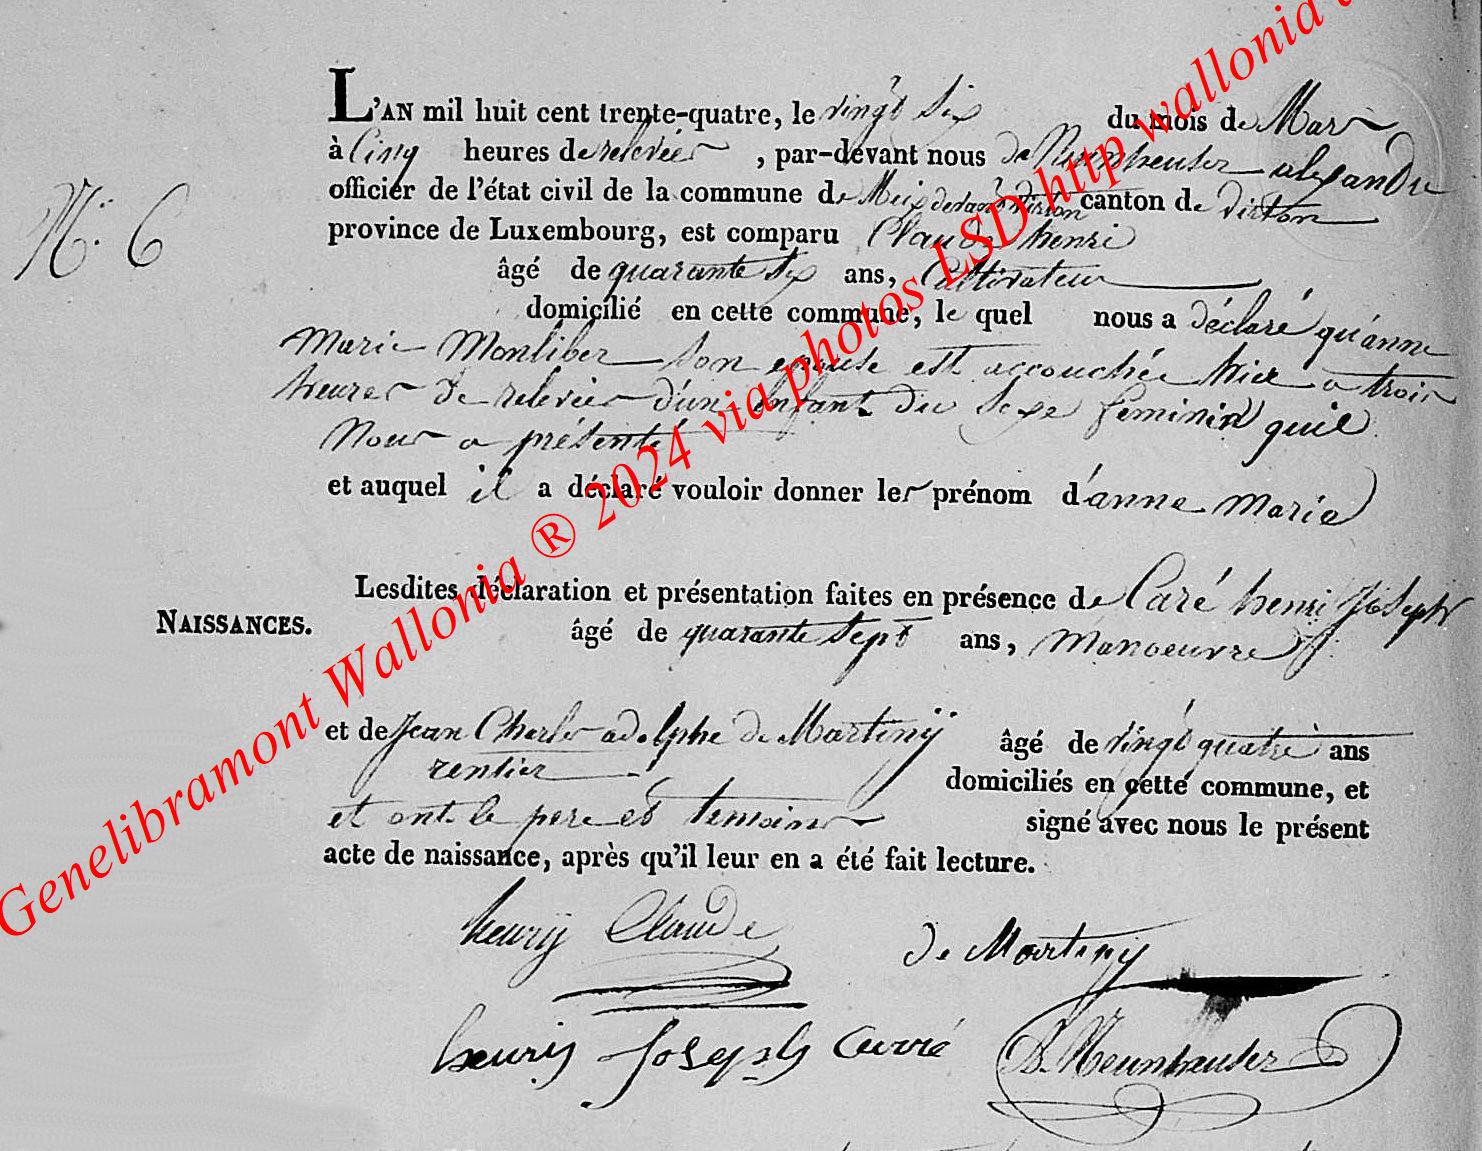 L'AN mil huit cent trente-quatre, le vingt six du mois de Mars
à Cinq heures de relevées, par-devant nous de Neunheuser alexandre
officier de l'état civil de la commune de Meix devant virton canton de virton
province de Luxembourg, est comparu Claude henri
N.° 6
âgé de quarante six ans, Cultivateur
domicilié en cette commune, le quel nous a déclaré qu'anne
Marie Monliber son epouse est accouchée hier a trois
heures de relevées d'un enfant du sexe feminin quil
Nous a présenté
et auquel il a déclaré vouloir donner les prénom d'anne Marie
Lesdites déclaration et présentation faites en présence de Caré henri Joseph
NAISSANCES.
âgé de quarante sept ans, Manoeuvre
et de Jean Charles adolphe de Martiny âgé de vingt quatre ans
rentier domiciliés en cette commune, et
et ont le pere et temoins signé avec nous le présent
acte de naissance, après qu'il leur en a été fait lecture.
henry Claude de Martiny
henry Joseph Carré D. Neunheuser
Genelibramont Wallonia ® 2024 via photos LSD http wallonia